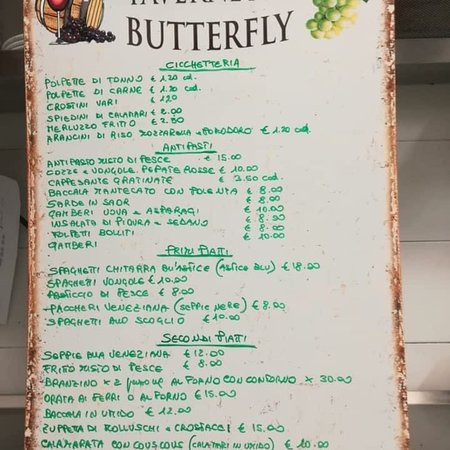 BUTTERFLY
CICCHETTERIA
POLPETTE DI TONNO € 1.20 cad.
POLPETTE DI CARNE € 1.20 cad.
CROSTINI VARI € 1.20
SPIEDINI DI CALAMARI € 2.00
MERLUZZO FRITTO € 2.50
ARANCINI DI RISO MOZZARELLA e POMODORO € 1.20 cad.
ANTIPASTI
ANTIPASTO MISTO DI PESCE € 15.00
COZZE e VONGOLE PEPATE ROSSE € 10.00
CAPPESANTE GRATINATE € 3.50 cad.
BACCALA MANTECATO CON POLENTA € 8.00
SARDE IN SAOR € 8.00
GAMBERI UOVA e ASPARAGI € 10.00
INSALATA DI PIOVRA e SEDANO € 8.50
FOLPETTI BOLLITI € 8.00
GAMBERI € 10.00
PRIMI PIATTI
SPAGHETTI CHITARRA ALL'ASTICE (ASTICE BLU) € 18.00
SPAGHETTI VONGOLE € 10.00
PASTICCIO DI PESCE € 8.00
PACCHERI VENEZIANA (SEPPIE NERE) € 8.00
SPAGHETTI ALLO SCOGLIO € 10.00
SECONDI PIATTI
SEPPIE ALLA VENEZIANA € 12.00
FRITTO MISTO DI PESCE € 8.00
BRANZINO x 2 persone AL FORNO CON CONTORNO x 30.00
ORATA AI FERRI O AL FORNO € 15.00
BACCALA IN UMIDO € 12.00
ZUPPETTA DI MOLLUSCHI e CROSTACEI € 15.00
CALAMARATA CON COUSCOUS (CALAMARI IN UMIDO) € 10.00